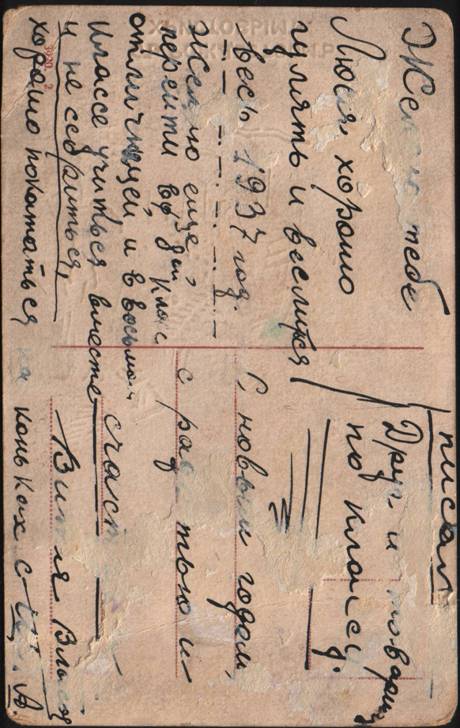 Желаю тебе
Люся, хорошо
гулять и веселится
весь 1937 год.
Желаю ещё,
перейти в 8й клас
отличницей, и в восьмом
классе учиться вместе
и не
хорошо покататься на коньках с
писал
Друг и товарищ
по классу.
С новым годом,
с радостью и
счаст
Витя